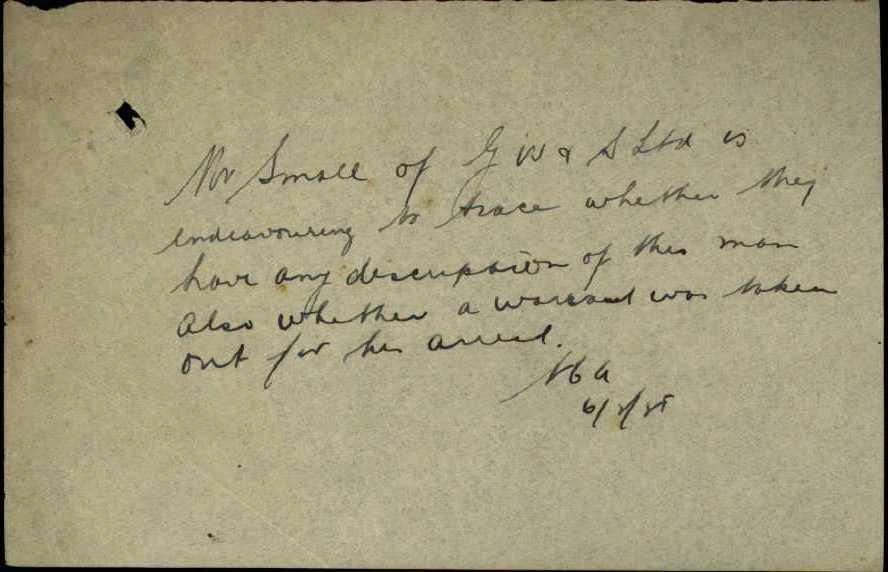 Mr Small of G W & S Ltd is
endeavouring to trace whether they
have any description of this man
Also whether a warrant was taken
out for his arrest.